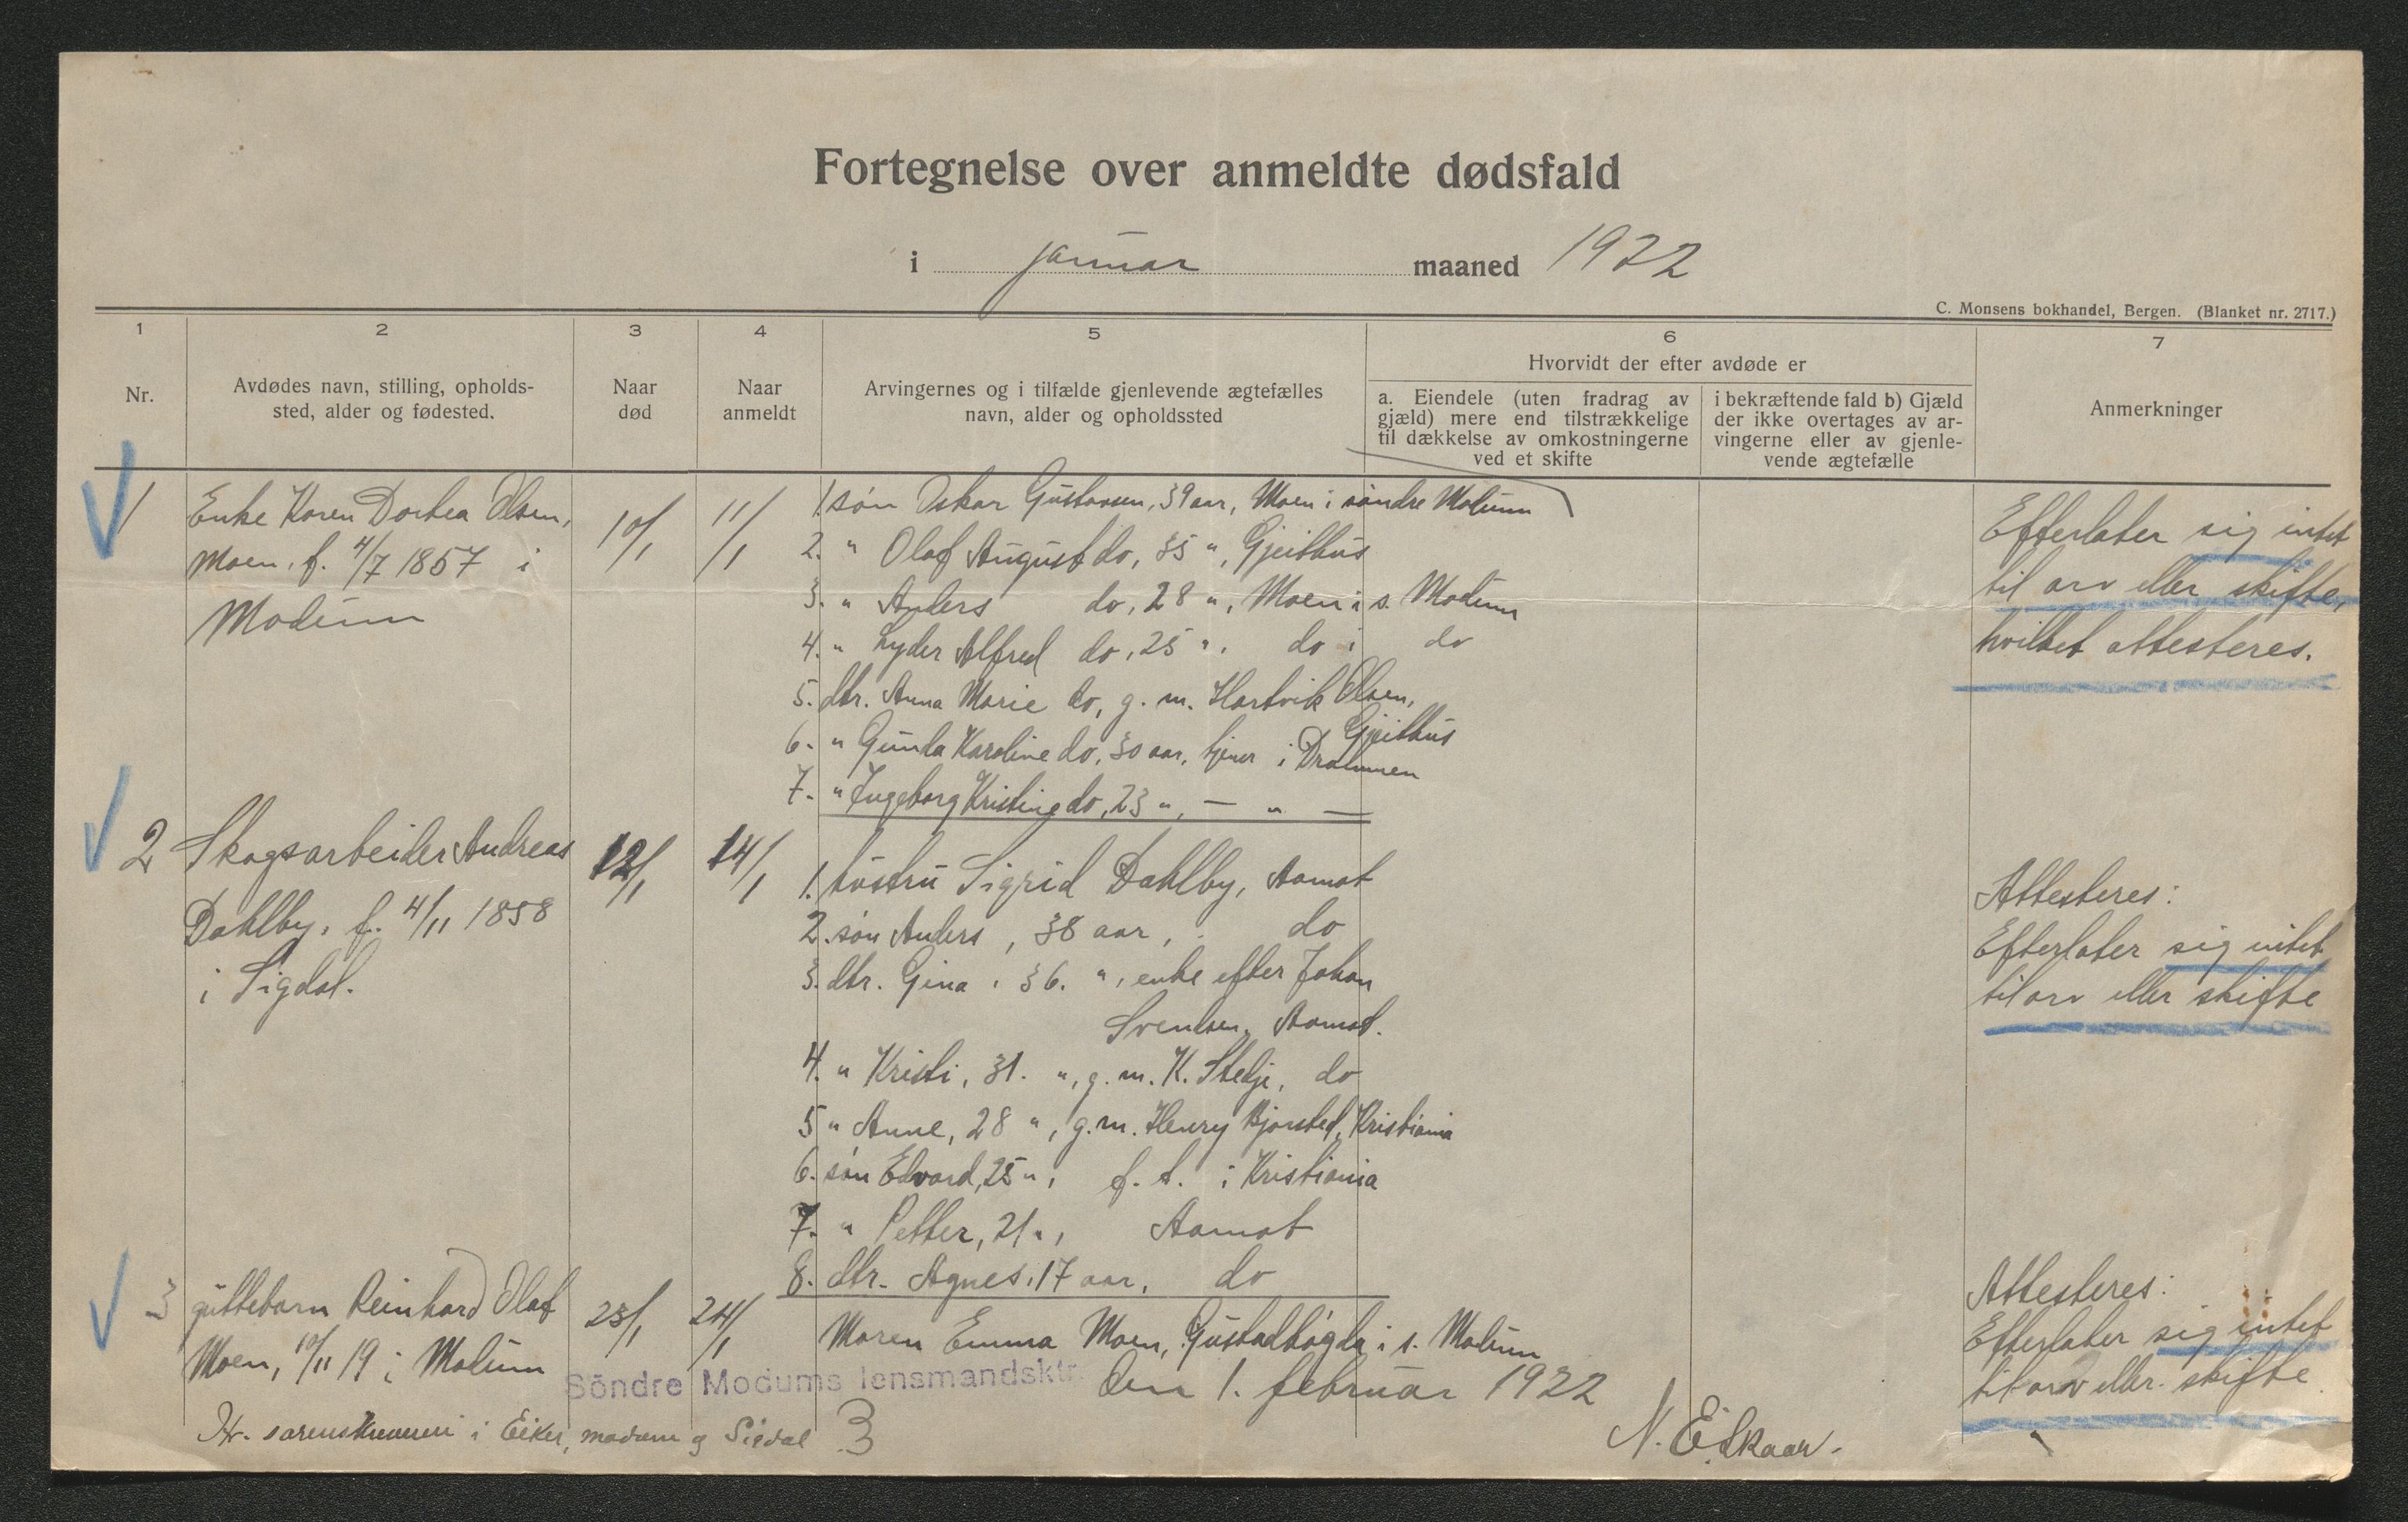 Fortegnelse over anmeldte dødsfald
i januar maaned 1922
C. Monsens bokhandel, Bergen. (Blanket nr. 2717.)
1 2 3 4 5 6 7
Nr.
Avdødes navn, stilling, opholds-
sted, alder og fødested.
Naar
død
Naar
anmeldt
Arvingernes og i tilfælde gjenlevende ægtefælles
navn, alder og opholdssted
Hvorvidt der efter avdøde er
a. Eiendele (uten fradrag av
gjæld) mere end tilstrækkelige
til dækkelse av omkostningerne
ved et skifte
i bekræftende fald b) Gjæld
der ikke overtages av ar-
vingerne eller av gjenle-
vende ægtefælle
Anmerkninger
1
Enke Karen Dortea Olsen,
Moen, f. 4/7 1857 i
Modum
10/1
11/1
1. søn Oskar Gustavsen, 39 aar, Moen i søndre Modum
2. " Olaf August do, 35 ", Gjeithus
3. " Anders do, 28 ", Moen i s. Modum
4. " Lyder Alfred do, 25 ", do i do
5. dtr. Anna Marie do, g. m. Hartvik Olsen,
Gjeithus
6. " Gunda Karoline do, 30 aar, tjener i Drammen
7. " Ingeborg Kristine do, 23 ", — " —
Efterlater sig intet
til arv eller skifte,
hvilket attesteres.
2
Skogsarbeider Andreas
Dahlby, f. 4/11 1858
i Sigdal.
12/1
14/1
1. hustru Sigrid Dahlby, Aamot
2. søn Anders, 38 aar, do
3. dtr. Gina, 36. ", enke efter Johan
Svendsen, Aamot.
4. " Kristi, 31. ", g. m. K. Stedje, do
5 " Anne, 28 ", g. m. Henry Bjørsted, Kristiania
6. søn Edvard, 25 ", f. t. i Kristiania
7. " Petter, 21 ", Aamot
8. dtr. Agnes, 17 aar, do
Attesteres:
Efterlater sig intet
til arv eller skifte
3
guttebarn Reinhard Olaf
Moen, 10/11 19 i Modum
23/1
24/1
Maren Emma Moen, Gustadbøgda i s. Modum
Attesteres:
Efterlater sig intet
til arv eller skifte
Söndre Modums lensmandsktr.
den 1. februar 1922
Hr. sorenskriveren i Eiker, modum og Sigdal
3
N. Eikaar.